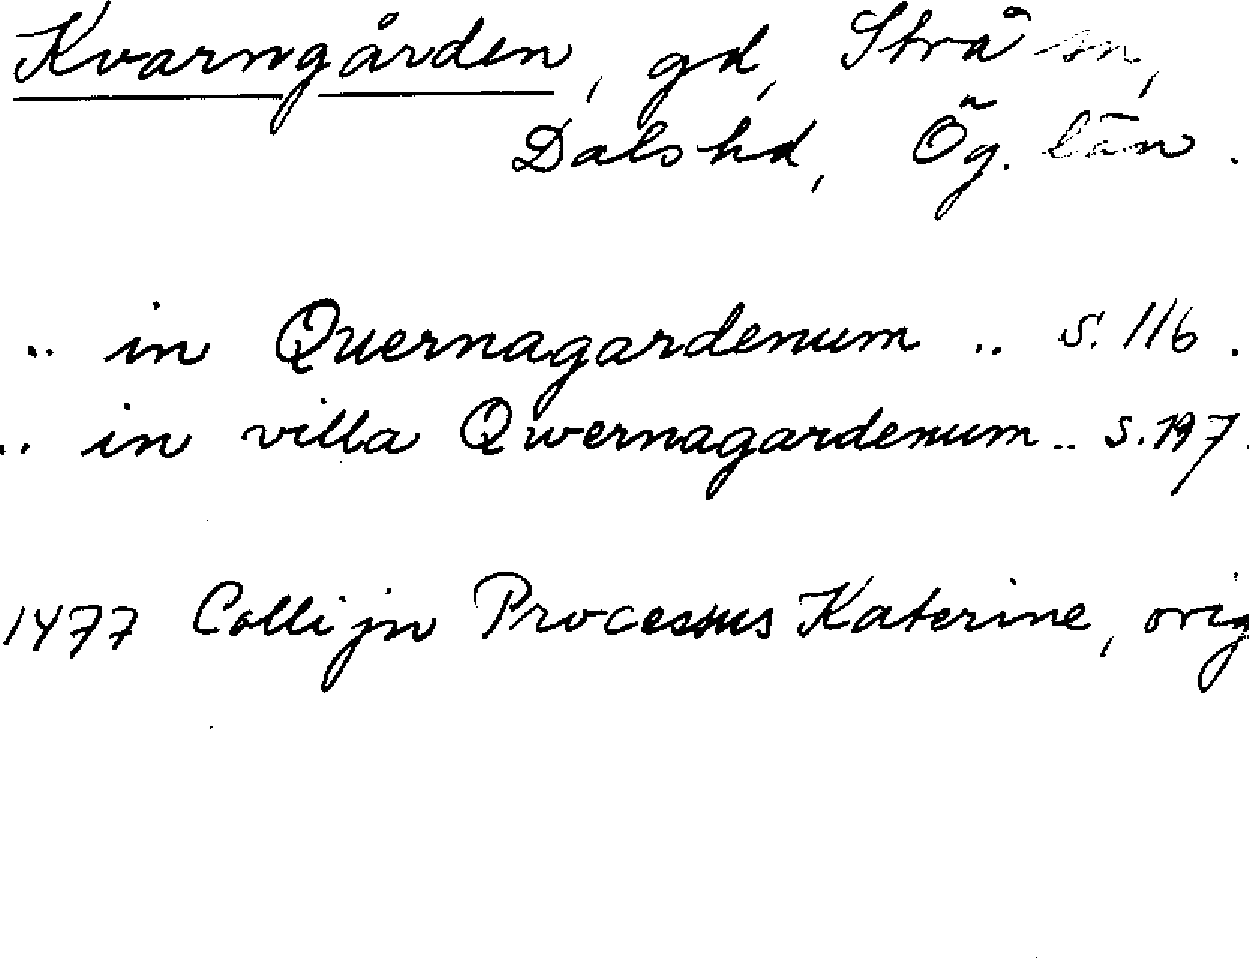 Kvarngården, gd, Strå sn,
Dals hd, Ög. län.
.. in Quernagardenum .. s. 116.
.. in villa Qwernagardenum .. s. 197.
1477 Collijn Processus Katerine, orig